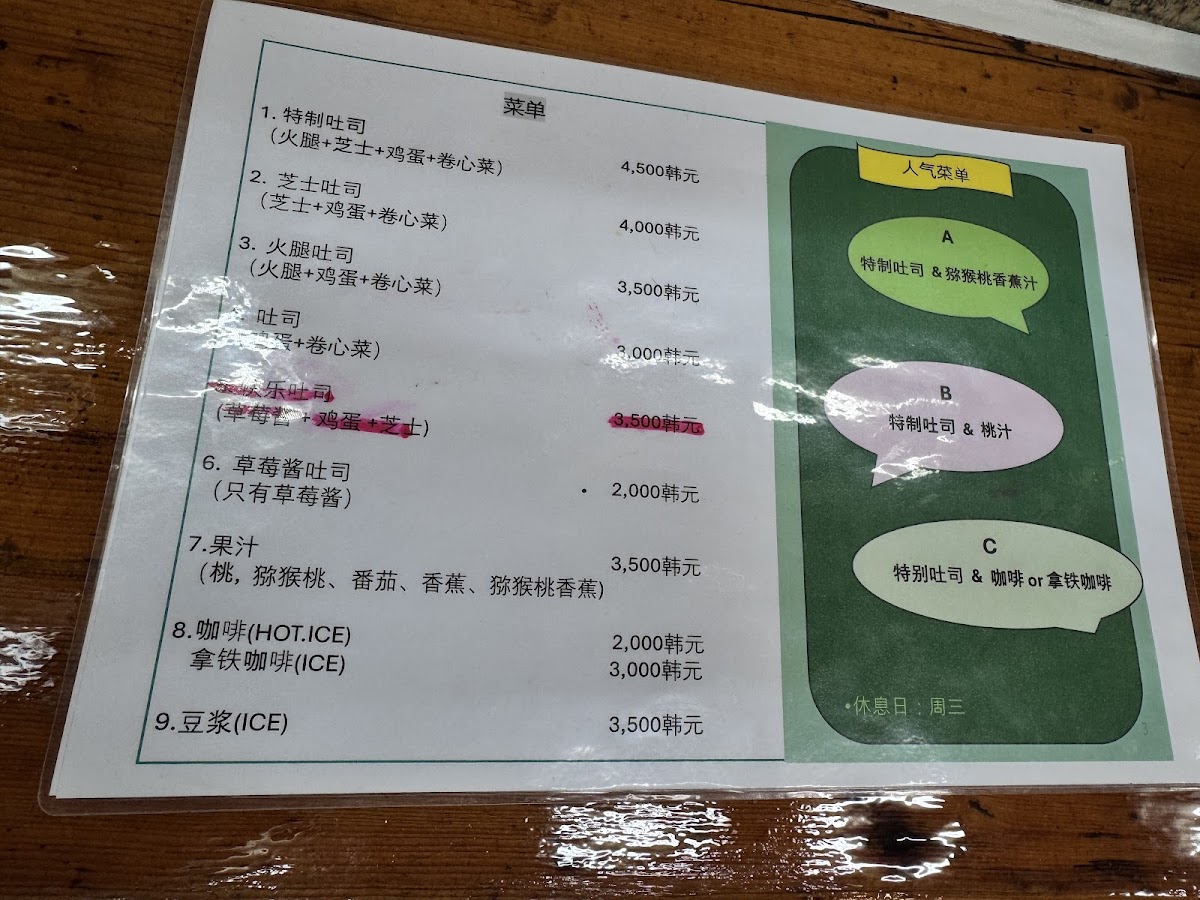 菜单
1. 特制吐司
（火腿+芝士+鸡蛋+卷心菜） 4,500韩元
2. 芝士吐司
（芝士+鸡蛋+卷心菜） 4,000韩元
3. 火腿吐司
（火腿+鸡蛋+卷心菜） 3,500韩元
吐司
鸡蛋+卷心菜） 3,000韩元
快乐吐司
(草莓酱 + 鸡蛋 +芝士) 3,500韩元
6. 草莓酱吐司
（只有草莓酱） 2,000韩元
7.果汁
（桃，猕猴桃、番茄、香蕉、猕猴桃香蕉) 3,500韩元
8.咖啡(HOT.ICE) 2,000韩元
拿铁咖啡(ICE) 3,000韩元
9.豆浆(ICE) 3,500韩元
人气菜单
A
特制吐司 &猕猴桃香蕉汁
B
特制吐司 & 桃汁
C
特别吐司 & 咖啡 or 拿铁咖啡
•休息日：周三
3